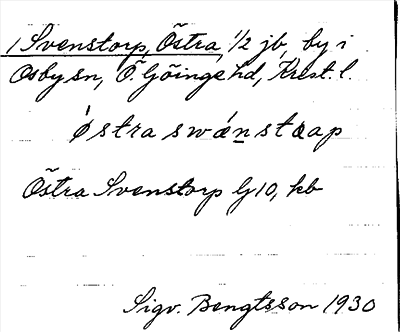 1 Svenstorp, Östra, 1/2 jb, by i
Osby sn, Ö. Göinge hd, Krist. l.
östra swǽn̲stap
Östra Svenstorp G10, kb
Sigv. Bengtsson 1930